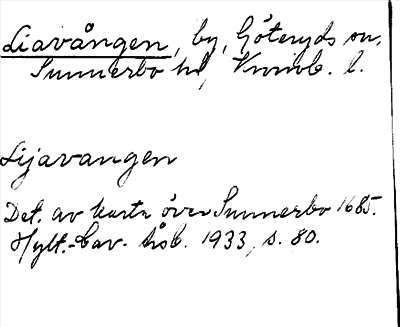 Liavången, by, Göteryds sn,
Sunnerbo hd, Kronob. l.
Lijavangen
Det. av karta över Sunnerbo 1685.
Hylt.-Cav. årsb. 1933, s. 80.